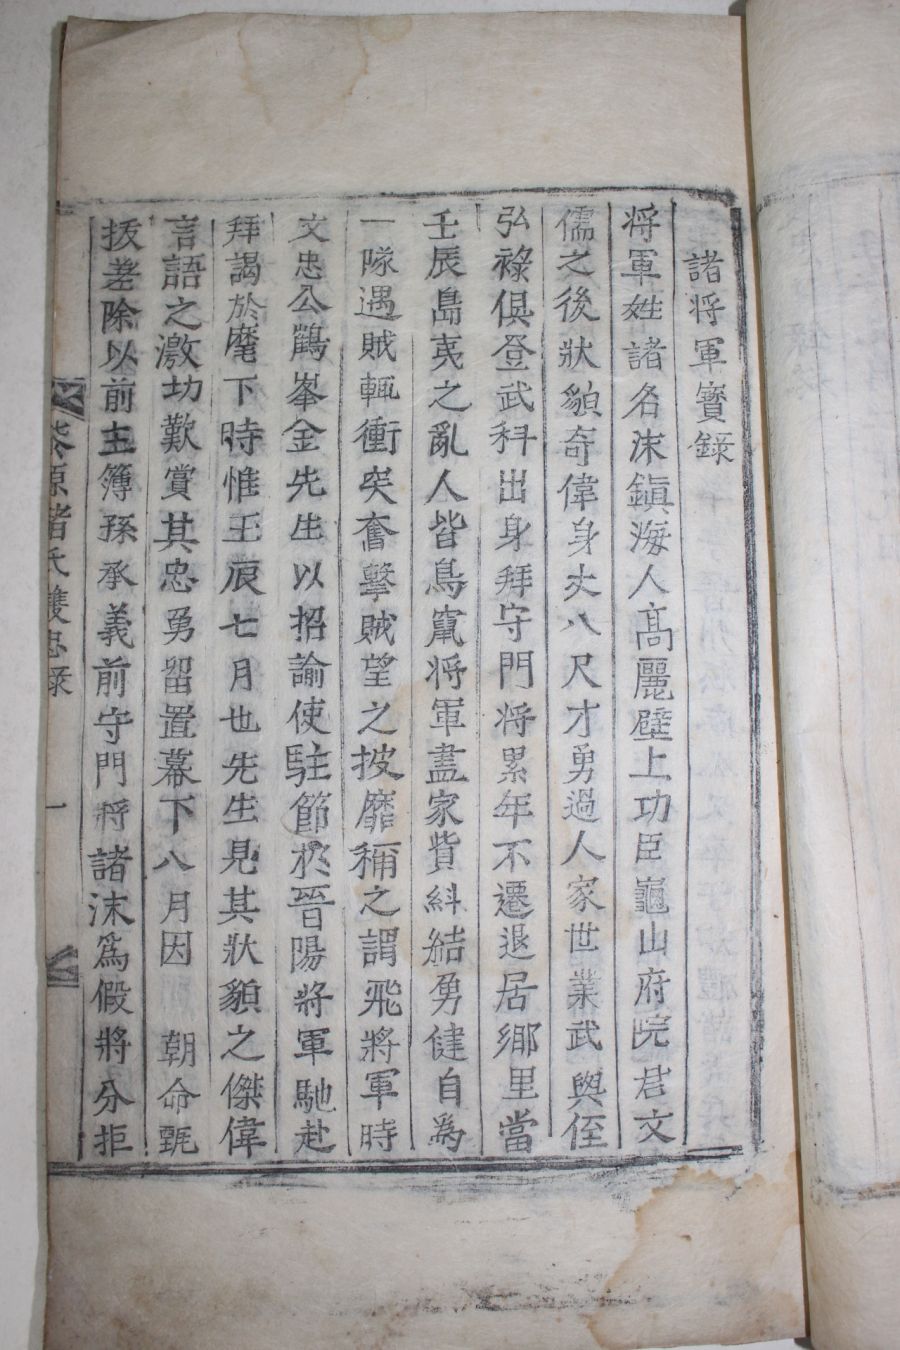 諸將軍實錄
將軍姓諸名沫鎭海人高麗壁上功臣龜山府院君文
儒之後狀貌奇偉身丈八尺才勇過人家世業武與侄
弘祿俱登武科出身拜守門將累年不遷退居鄉里當
壬辰島夷之亂人皆鳥竄將軍盡家貲糾結勇健自爲
一隊遇賊輒衝突奮擊賊望之披靡稱之謂飛將軍時
文忠公鶴峯金先生以招諭使駐節於晉陽將軍馳赴
拜謁於麾下時惟壬辰七月也先生見其狀貌之傑偉
言語之激切歎賞其忠勇留置幕下八月因 朝命甄
拔差除以前主簿孫承義前守門將諸沫爲假將分拒
柒原諸氏雙忠錄
一